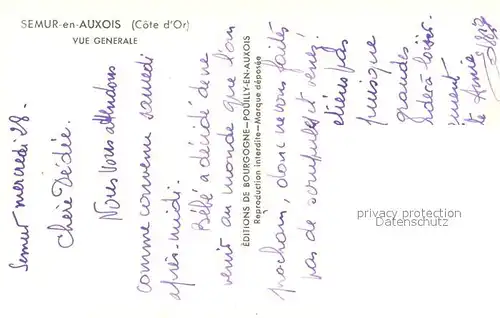 SEMUR-en-AUXOIS (Côte d'Or)
VUE GENERALE
ÉDITIONS DE BOURGOGNE—POUILLY-EN-AUXOIS
Reproduction interdite—Marque déposée
Semur mercredi 28.
Chère Dédée.
Nous vous attendons
comme convenu samedi
après-midi.
Bébé a décidé de ne
venir au monde que l'an
prochain, donc ne vous faites
pas de scrupules et venez!
puisque
grandes
privacy protection
Datenschutz